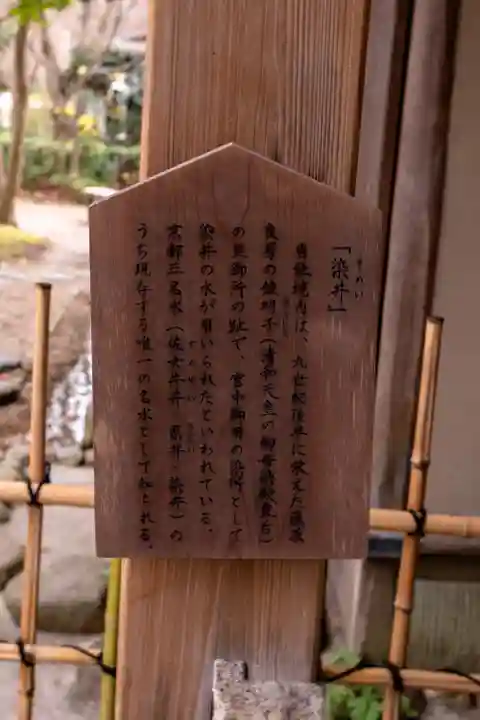 「染井」
そめい
当社境内は、九世紀後半に栄えた藤原
良房の娘明子(清和天皇の御母染殿皇后)
の里御所の趾で、宮中御用の染所として
染井の水が用いられたといわれている。
京都三名水(佐女牛井 県井 染井)の
うち現存する唯一の名水として知られる。